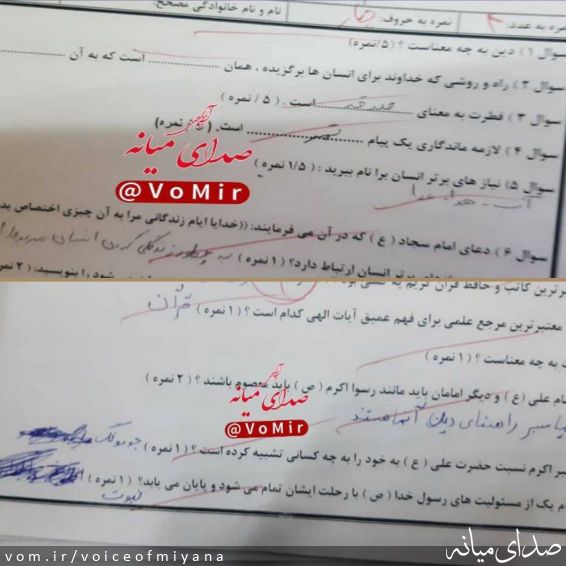 نمره به عدد: نمره به حروف: نام و نام خانوادگی مصحح:
سوال ۱) دین به چه معناست ؟ (۵/نمره)
سوال ۲) راه و روشی که خداوند برای انسان ها برگزیده ، همان .................... است که به آن ....................
سوال ۳) فطرت به معنای .................... است . ( ۵ / نمره )
سوال ۴) لازمه ماندگاری یک پیام .................... است. ( نمره)
صدای میانه
@VoMir
سوال ۵) نیاز های برتر انسان را نام ببرید : ( ۱/۵ نمره )
آب - هوا - غذا
سوال ۶) دعای امام سجاد ( ع ) که در آن می فرمایند: ((خدایا ایام زندگانی مرا به آن چیزی اختصاص بده
برتر انسان ارتباط دارد؟ ( ۱ نمره )
ترین کاتب و حافظ قرآن کریم
شود را بنویسید: ( ۲ نمره
معتبرترین مرجع علمی برای فهم عمیق آیات الهی کدام است ؟ ( ۱ نمره ) قرآن
به چه معناست ؟ ( ۱ نمره )
ام علی ( ع ) و دیگر امامان باید مانند رسول اکرم ( ص ) باید معصوم باشند ؟ ( ۲ نمره )
صدای میانه
@VoMir
راهنمای دین آنها هستند
بر اکرم نسبت حضرت علی ( ع ) به خود را به چه کسانی تشبیه کرده است ؟ ( ۱ نمره )
ام یک از مسئولیت های رسول خدا ( ص ) با رحلت ایشان تمام می شود و پایان می یابد؟ ( ۱ نمره ) نبوت
vom.ir/voiceofmiyana
صدای میانه